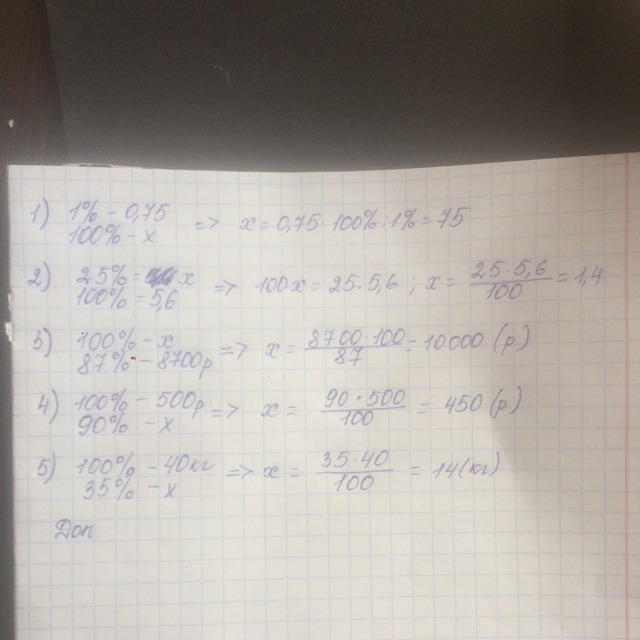 1) 1% – 0,75 => x = 0,75·100% : 1% = 75
100% – x
2) 25% = x => 100x = 25·5,6 ; x = 25·5,6 / 100 = 1,4
100% = 5,6
3) 100% – x => x = 8700·100 / 87 = 10000 (р)
87% – 8700р
4) 100% – 500р => x = 90·500 / 100 = 450 (р)
90% – x
5) 100% – 40кг => x = 35·40 / 100 = 14 (кг)
35% – x
Доп